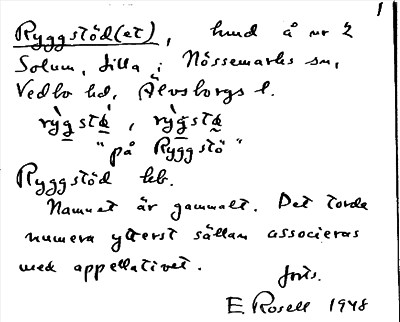 1
Ryggstöd(et), hmd å nr 2
Solum, Lilla i Nössemarks sn,
Vedbo hd, Älvsborgs l.
"på Ryggstö"
Ryggstöd leb.
Namnet är gammalt. Det torde
numera ytterst sällan associeras
med appellativet.
forts.
E. Rosell 1948